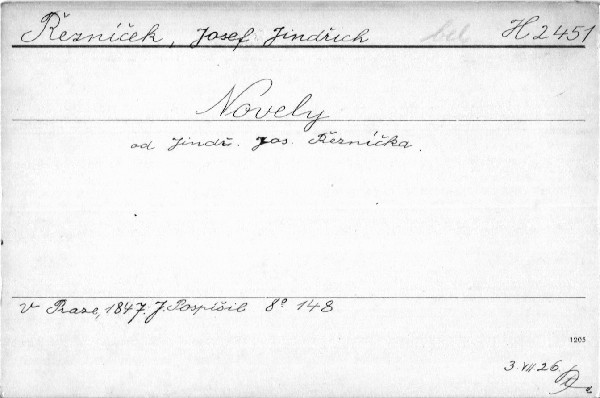 Řezníček, Josef Jindřich bel. H 2451
Novely
od Jindř. Jos. Řezníčka.
V Praze, 1847. J. Pospíšil 8° 148
1205
3 VII 26